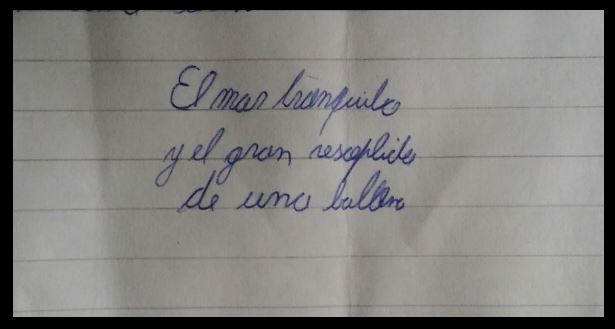 El mar tranquilo
y el gran resoplido
de una ballena